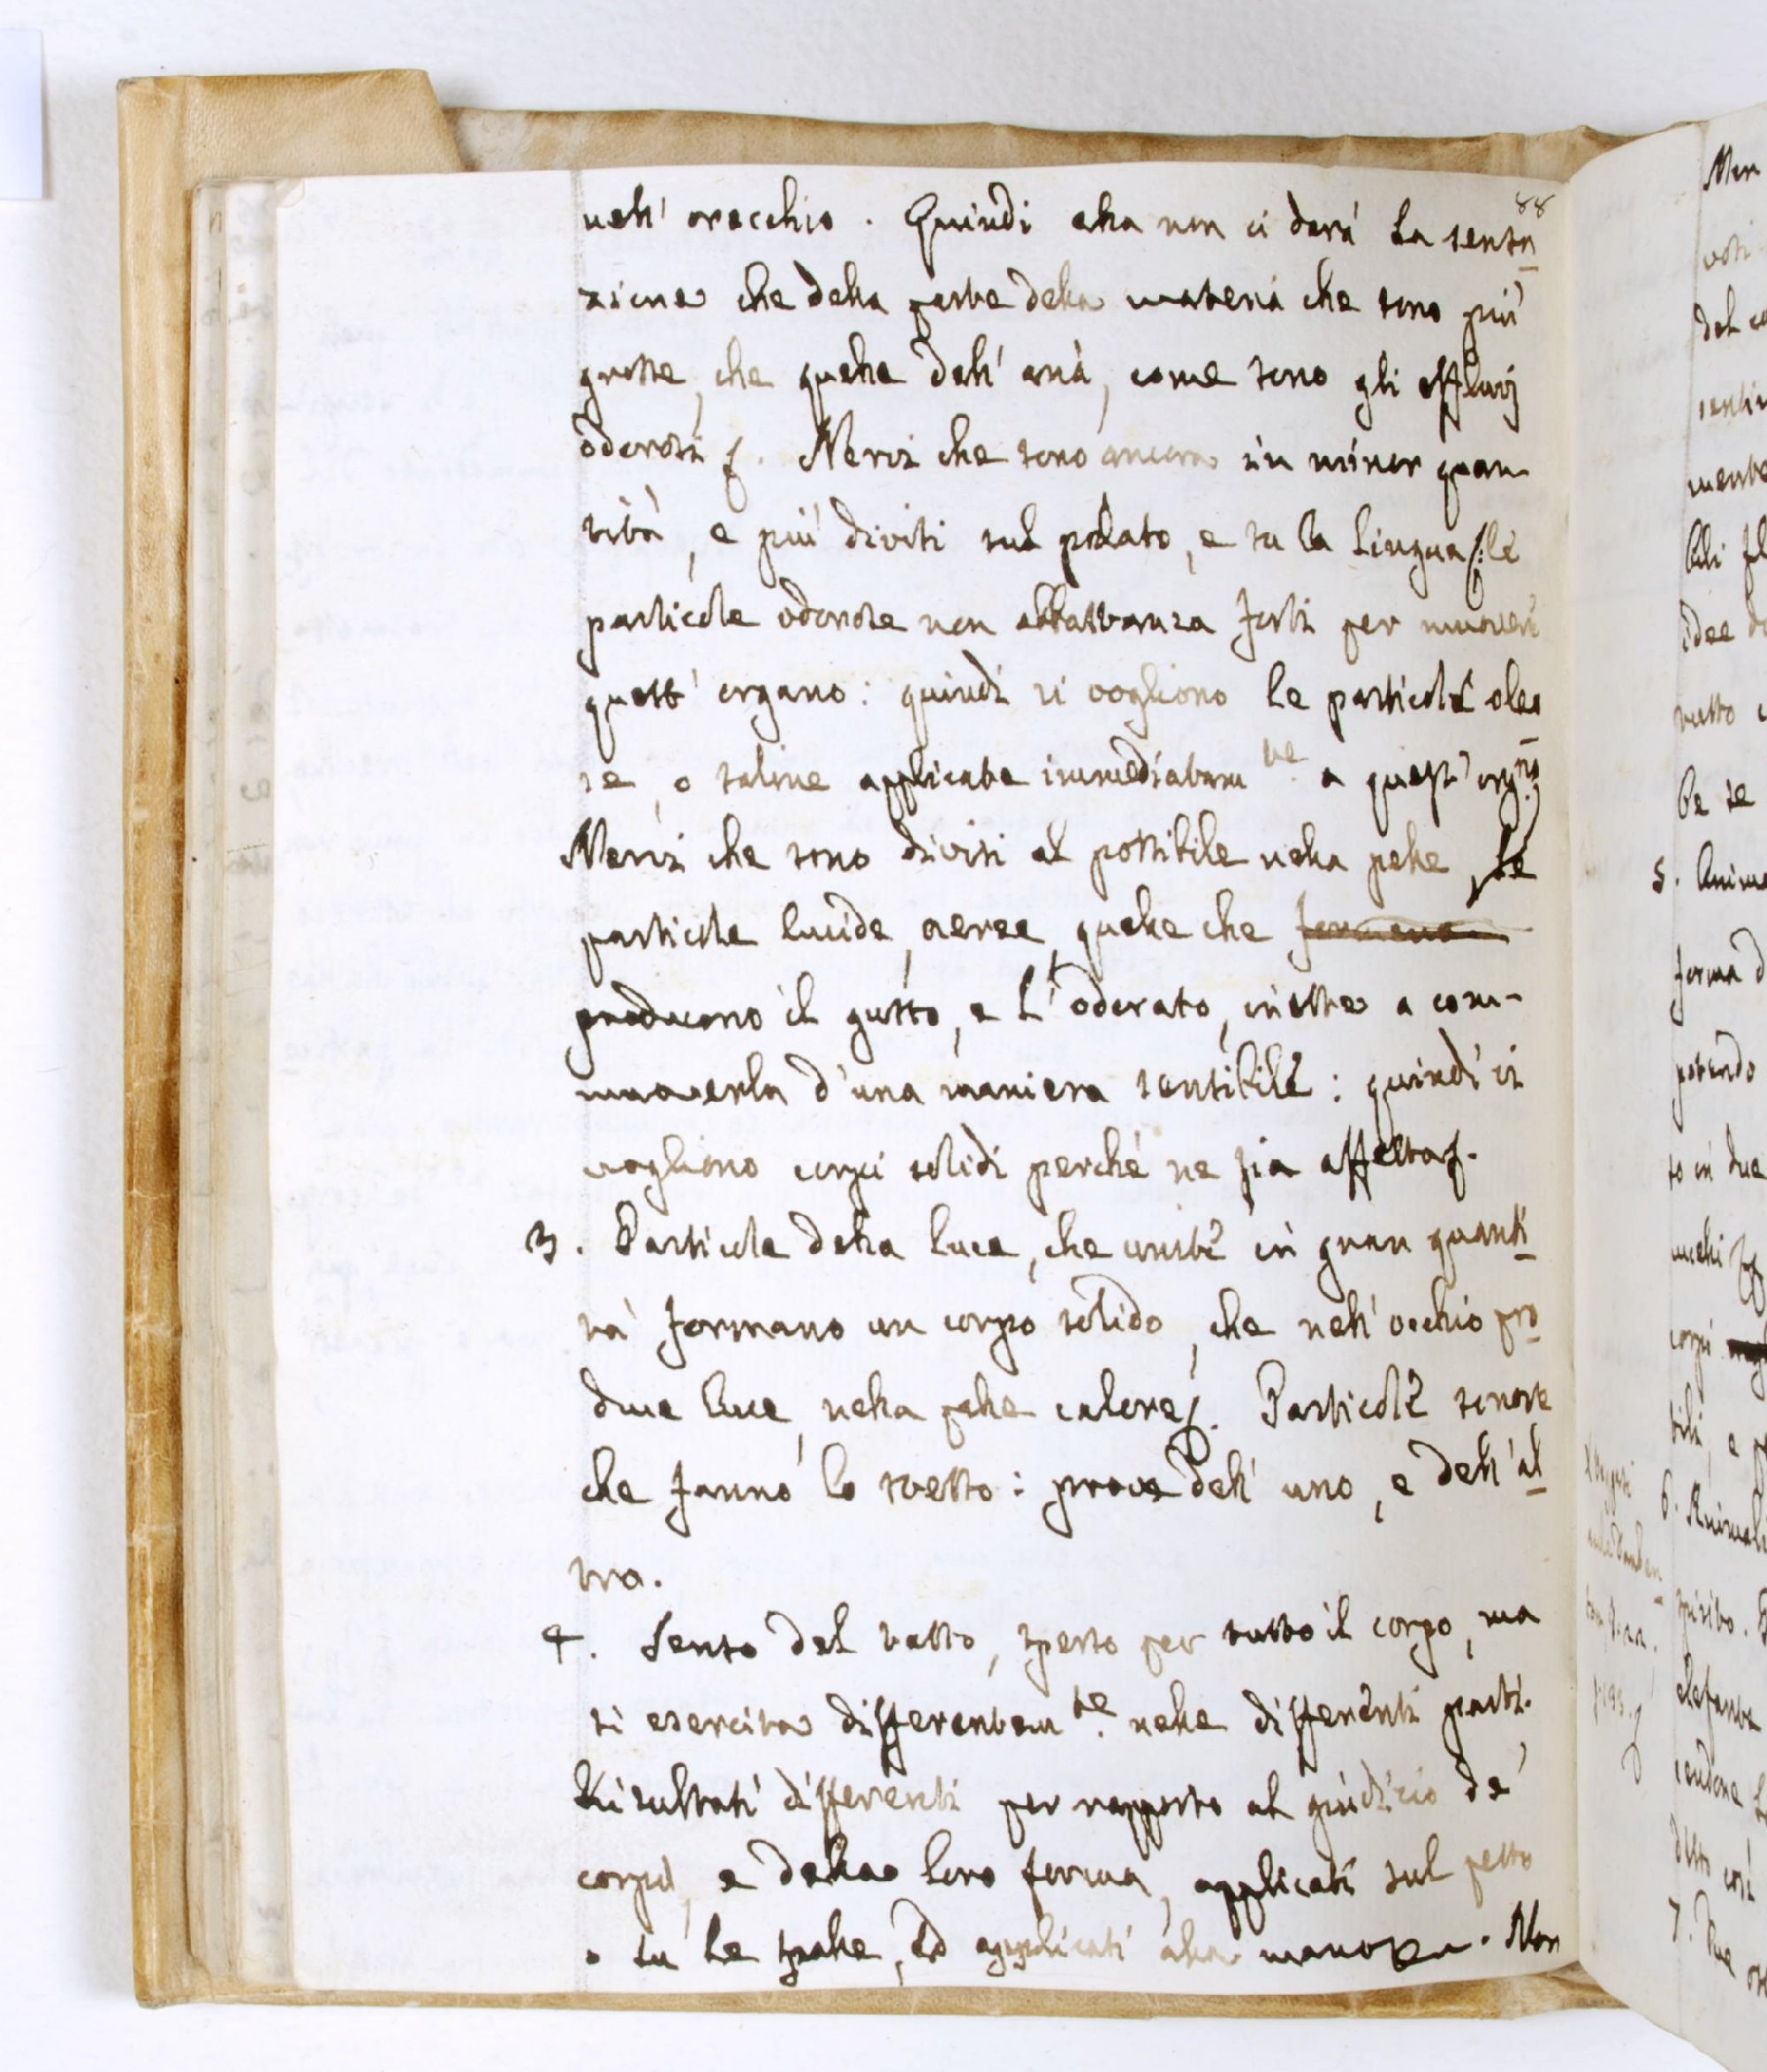 88
nell' orecchio. Quindi ella non ci darà la sensa
zione che della parte della materia che sono più
grosse, che quelle dell' aria, come sono gli effluvj
odorosi f. Nervi che sono ancora in minor quan
tità, e più divisi sul palato, e su la lingua f: le
particole odorose non abbastanza forti per muovere
quest' organo: quindi vi vogliono le particole oleo
se, o saline applicate immediatam.te a quest' org.no
Nervi che sono divisi al possibile nella pelle, le
particole lucide, aeree, quelle che formano
producono il gusto, e l' odorato, inette a com-
muoverla d'una maniera sensibile: quindi vi
vogliono corpi solidi perché ne sia affetta f.
3. Particole della luce, che unite in gran quanti
tà formano un corpo solido, che nell' occhio pro
duce luce, nella pelle calore f. Particole sonore
che fanno lo stesso: prove dell' uno, e dell' al
tro.
4. Senso del tatto, sparso per tutto il corpo, ma
si esercita differentem.te nelle differenti parti.
Risultati differenti per rapporto al giudizio de'
corpi, e della loro forma, applicati sul petto
o su le spalle, ed applicati alla mano f. Non
Mer
voti
del co
mente
idee
tutto
te se
5. Anima
forma d
potendo
to in due
corpi
6. Animali
spirito.
elefante
detto così
7. Due